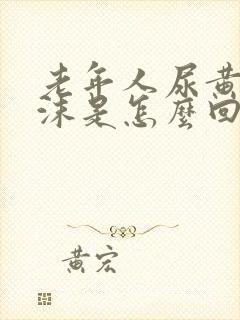 老年人尿黄
沫是怎麼回
黄宏